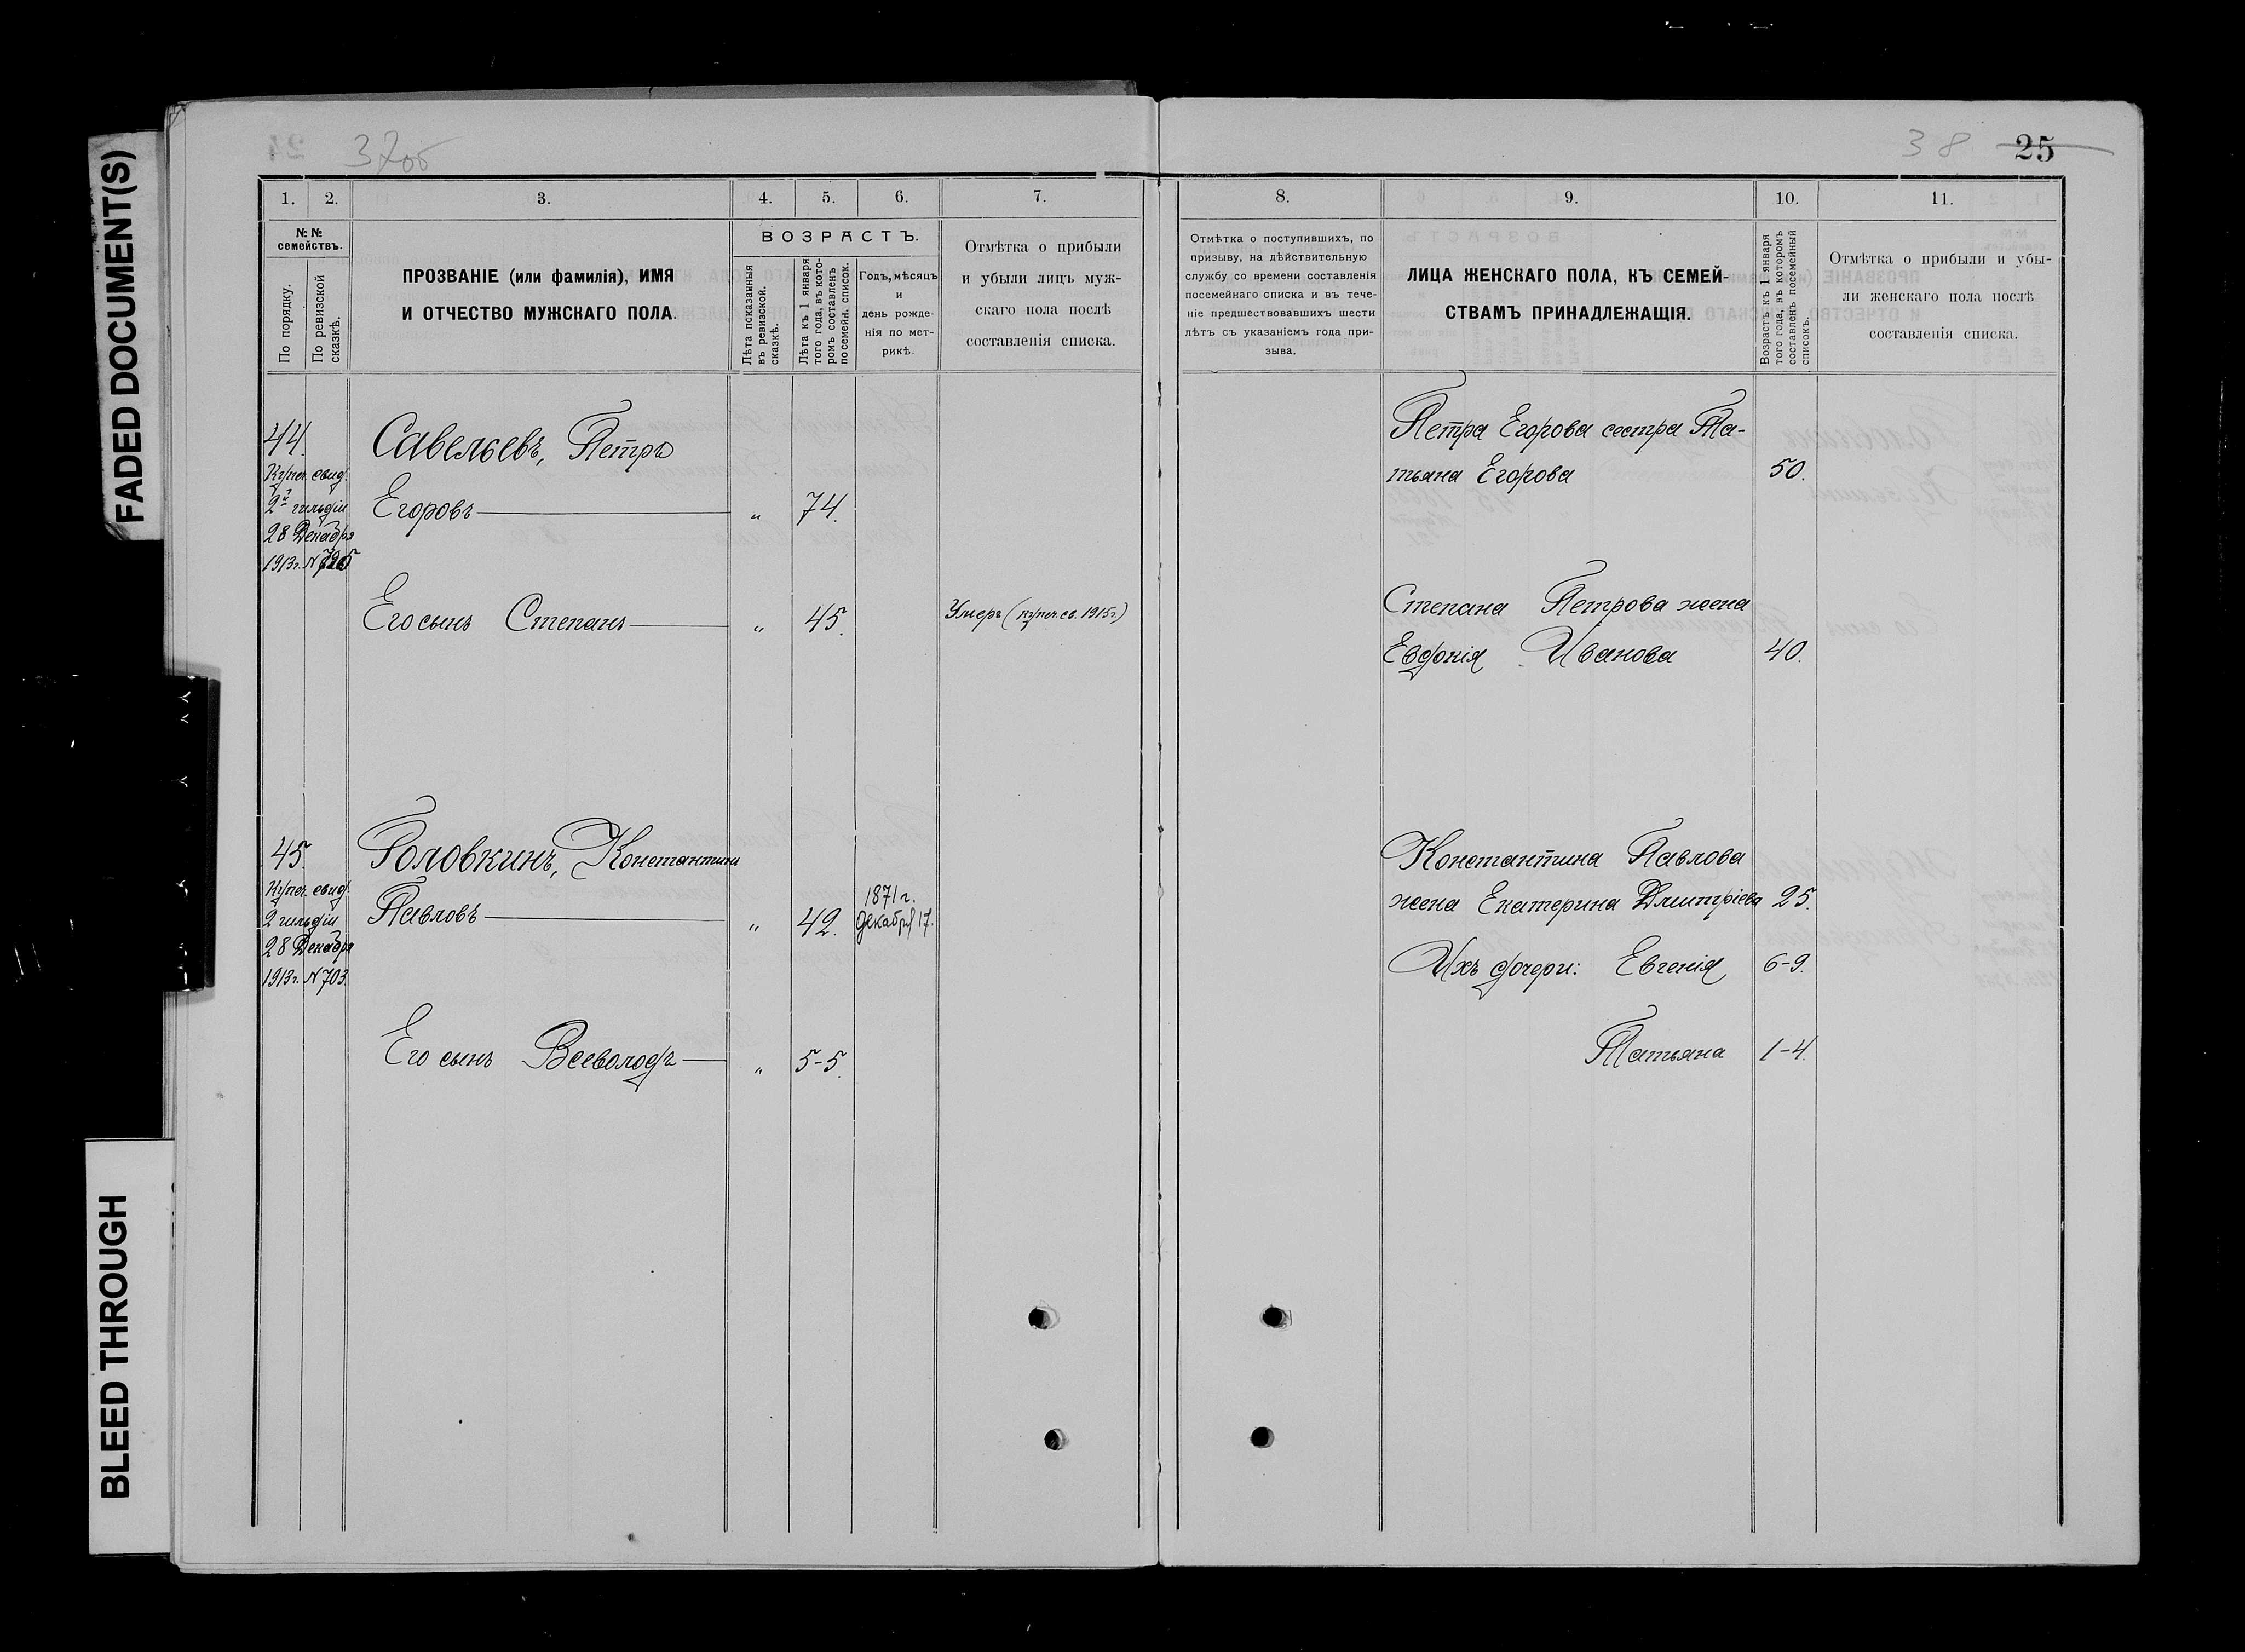 FADED DOCUMENT(S)
BLEED THROUGH
37об
38 25
1. 2. 3. 4. 5. 6. 7.
№ №
семействъ.
По порядку.
По ревизской
сказкѣ.
ПРОЗВАНІЕ (или фамилія), ИМЯ
И ОТЧЕСТВО МУЖСКАГО ПОЛА.
ВОЗРАСТЪ.
Лѣта показанныя
въ ревизской.
сказкѣ.
Лѣта къ 1 января
того года, въ кото-
ромъ составленъ
посемейн. список.
Годъ, мѣсяцъ
и
день рожде-
нія по мет-
рикѣ.
Отмѣтка о прибыли
и убыли лицъ муж-
скаго пола послѣ
составленія списка.
44.
Купеч. свид.
2й гильдіи
28 Декабря
1913г. №
Савельевъ, Петръ
Егоровъ — „ 74.
Его сынъ Степанъ — „ 45. Умеръ (купеч. св. 1915г.)
45.
Купеч. свид.
2 гильдіи
28 Декабря
1913г. №703.
Головкинъ, Константинъ
Павловъ — „ 42. 1871г.
декабря 17.
Его сынъ Всеволодъ — „ 5-5.
8. 9. 10. 11.
Отмѣтка о поступившихъ, по
призыву, на дѣйствительную
службу со времени составленія
посемейнаго списка и въ тече-
ніе предшествовавшихъ шести
лѣтъ съ указаніемъ года при-
зыва.
ЛИЦА ЖЕНСКАГО ПОЛА, КЪ СЕМЕЙ-
СТВАМЪ ПРИНАДЛЕЖАЩІЯ.
Возрастъ къ 1 января
того года, въ которомъ
составленъ посемейный
списокъ.
Отмѣтка о прибыли и убы-
ли женскаго пола послѣ
составленія списка.
Петра Егорова сестра Та-
тьяна Егорова 50.
Степана Петрова жена
Евдокія Иванова 40.
Константина Павлова
жена Екатерина Дмитріева 25.
Ихъ дочери: Евгенія 6-9.
Татьяна 1-4.